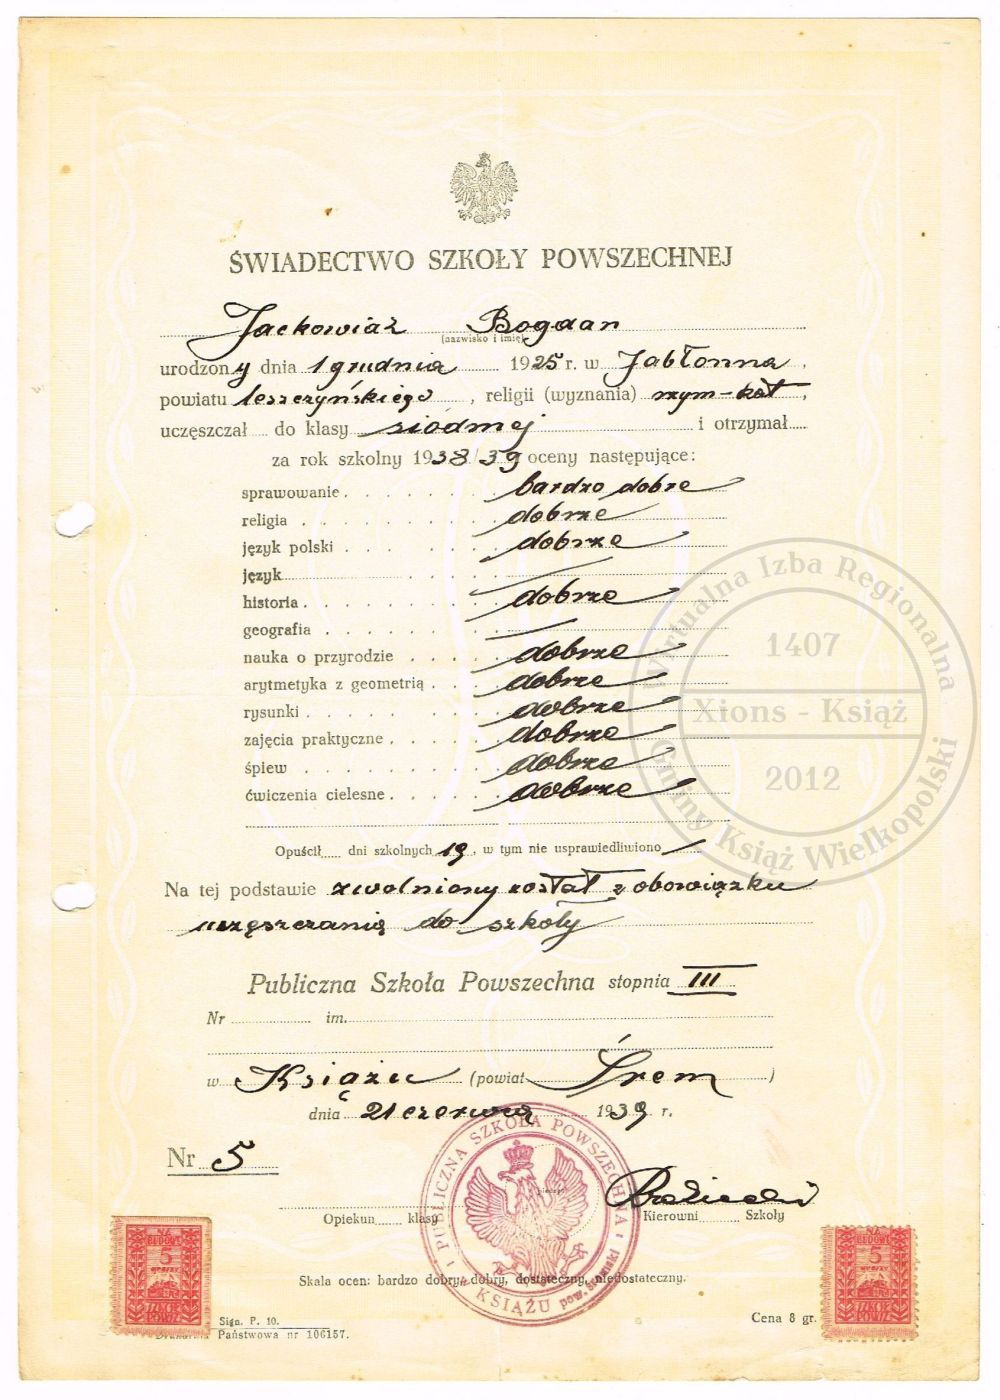 ŚWIADECTWO SZKOŁY POWSZECHNEJ
Jackowiak Bogdan
(nazwisko i imię)
urodzony dnia 1 grudnia 1925 r. w Jabłonna,
powiatu leszczyńskiego, religii (wyznania) rzym-kat,
uczęszczał do klasy siódmej i otrzymał
za rok szkolny 1938/39 oceny następujące:
sprawowanie bardzo dobre
religia dobrze
język polski dobrze
język —
historia dobrze
geografia —
nauka o przyrodzie dobrze
arytmetyka z geometrią dobrze
rysunki dobrze
zajęcia praktyczne dobrze
śpiew dobrze
ćwiczenia cielesne dobrze
Opuścił dni szkolnych 19, w tym nie usprawiedliwiono /
Na tej podstawie zwolniony został z obowiązku
uczęszczania do szkoły
Publiczna Szkoła Powszechna stopnia III
Nr im.
w Książu (powiat Śrem)
dnia 21 czerwca 1939 r.
Nr 5
Opiekun klasy
Kierowni Szkoły
PUBLICZNA SZKOŁA POWSZECHNA
w KSIĄŻU pow.
Skala ocen: bardzo dobry, dobry, dostateczny, niedostateczny.
NA BUDOWĘ 5 groszy SZKÓŁ POWSZ.
NA BUDOWĘ 5 groszy SZKÓŁ POWSZ.
Sign. P. 10.
Drukarnia Państwowa nr 106157.
Cena 8 gr.
Wirtualna Izba Regionalna
1407
Xions - Książ
2012
Gminy Książ Wielkopolski